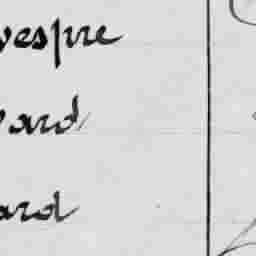 vespre
ard
ard